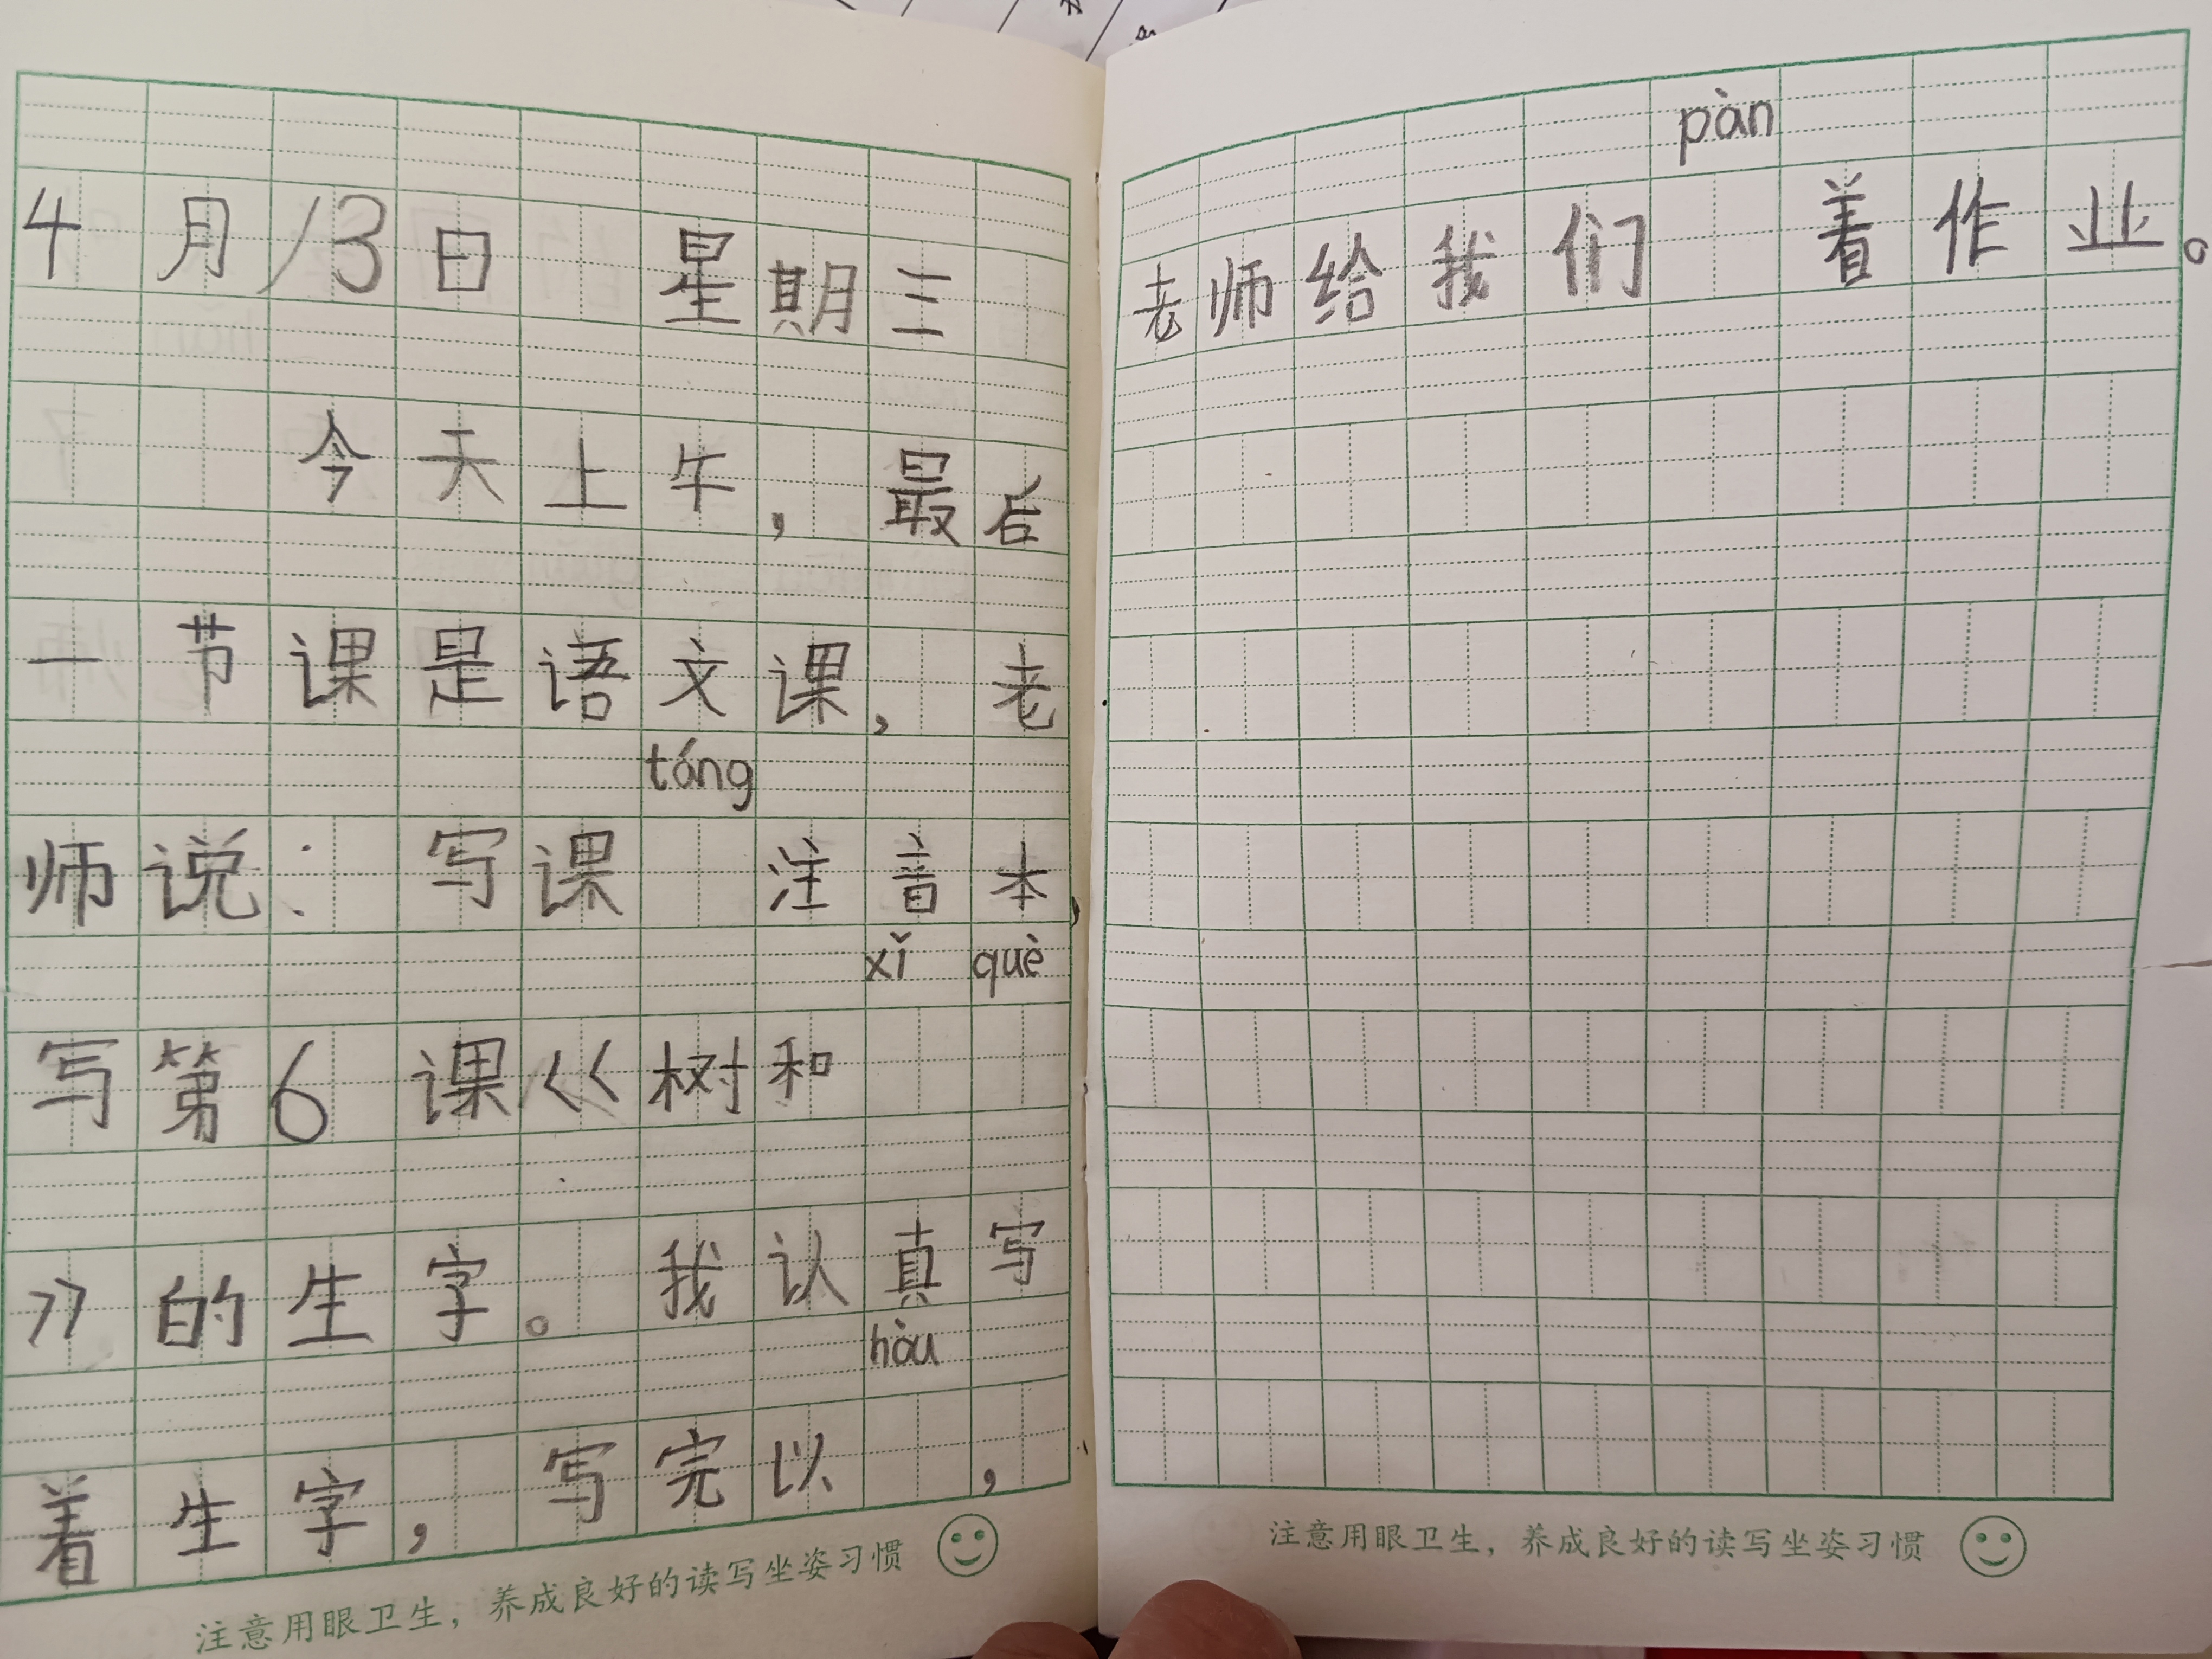 4月13日 星期三
今天上牛，最后
一节课是语文课，老
táng
师说：写课 注音本，
xǐ què
写第6课《树和
》的生字。我认真写
hòu
着生字，写完以 ，
注意用眼卫生，养成良好的读写坐姿习惯
pàn
老师给我们 着作业。
注意用眼卫生，养成良好的读写坐姿习惯